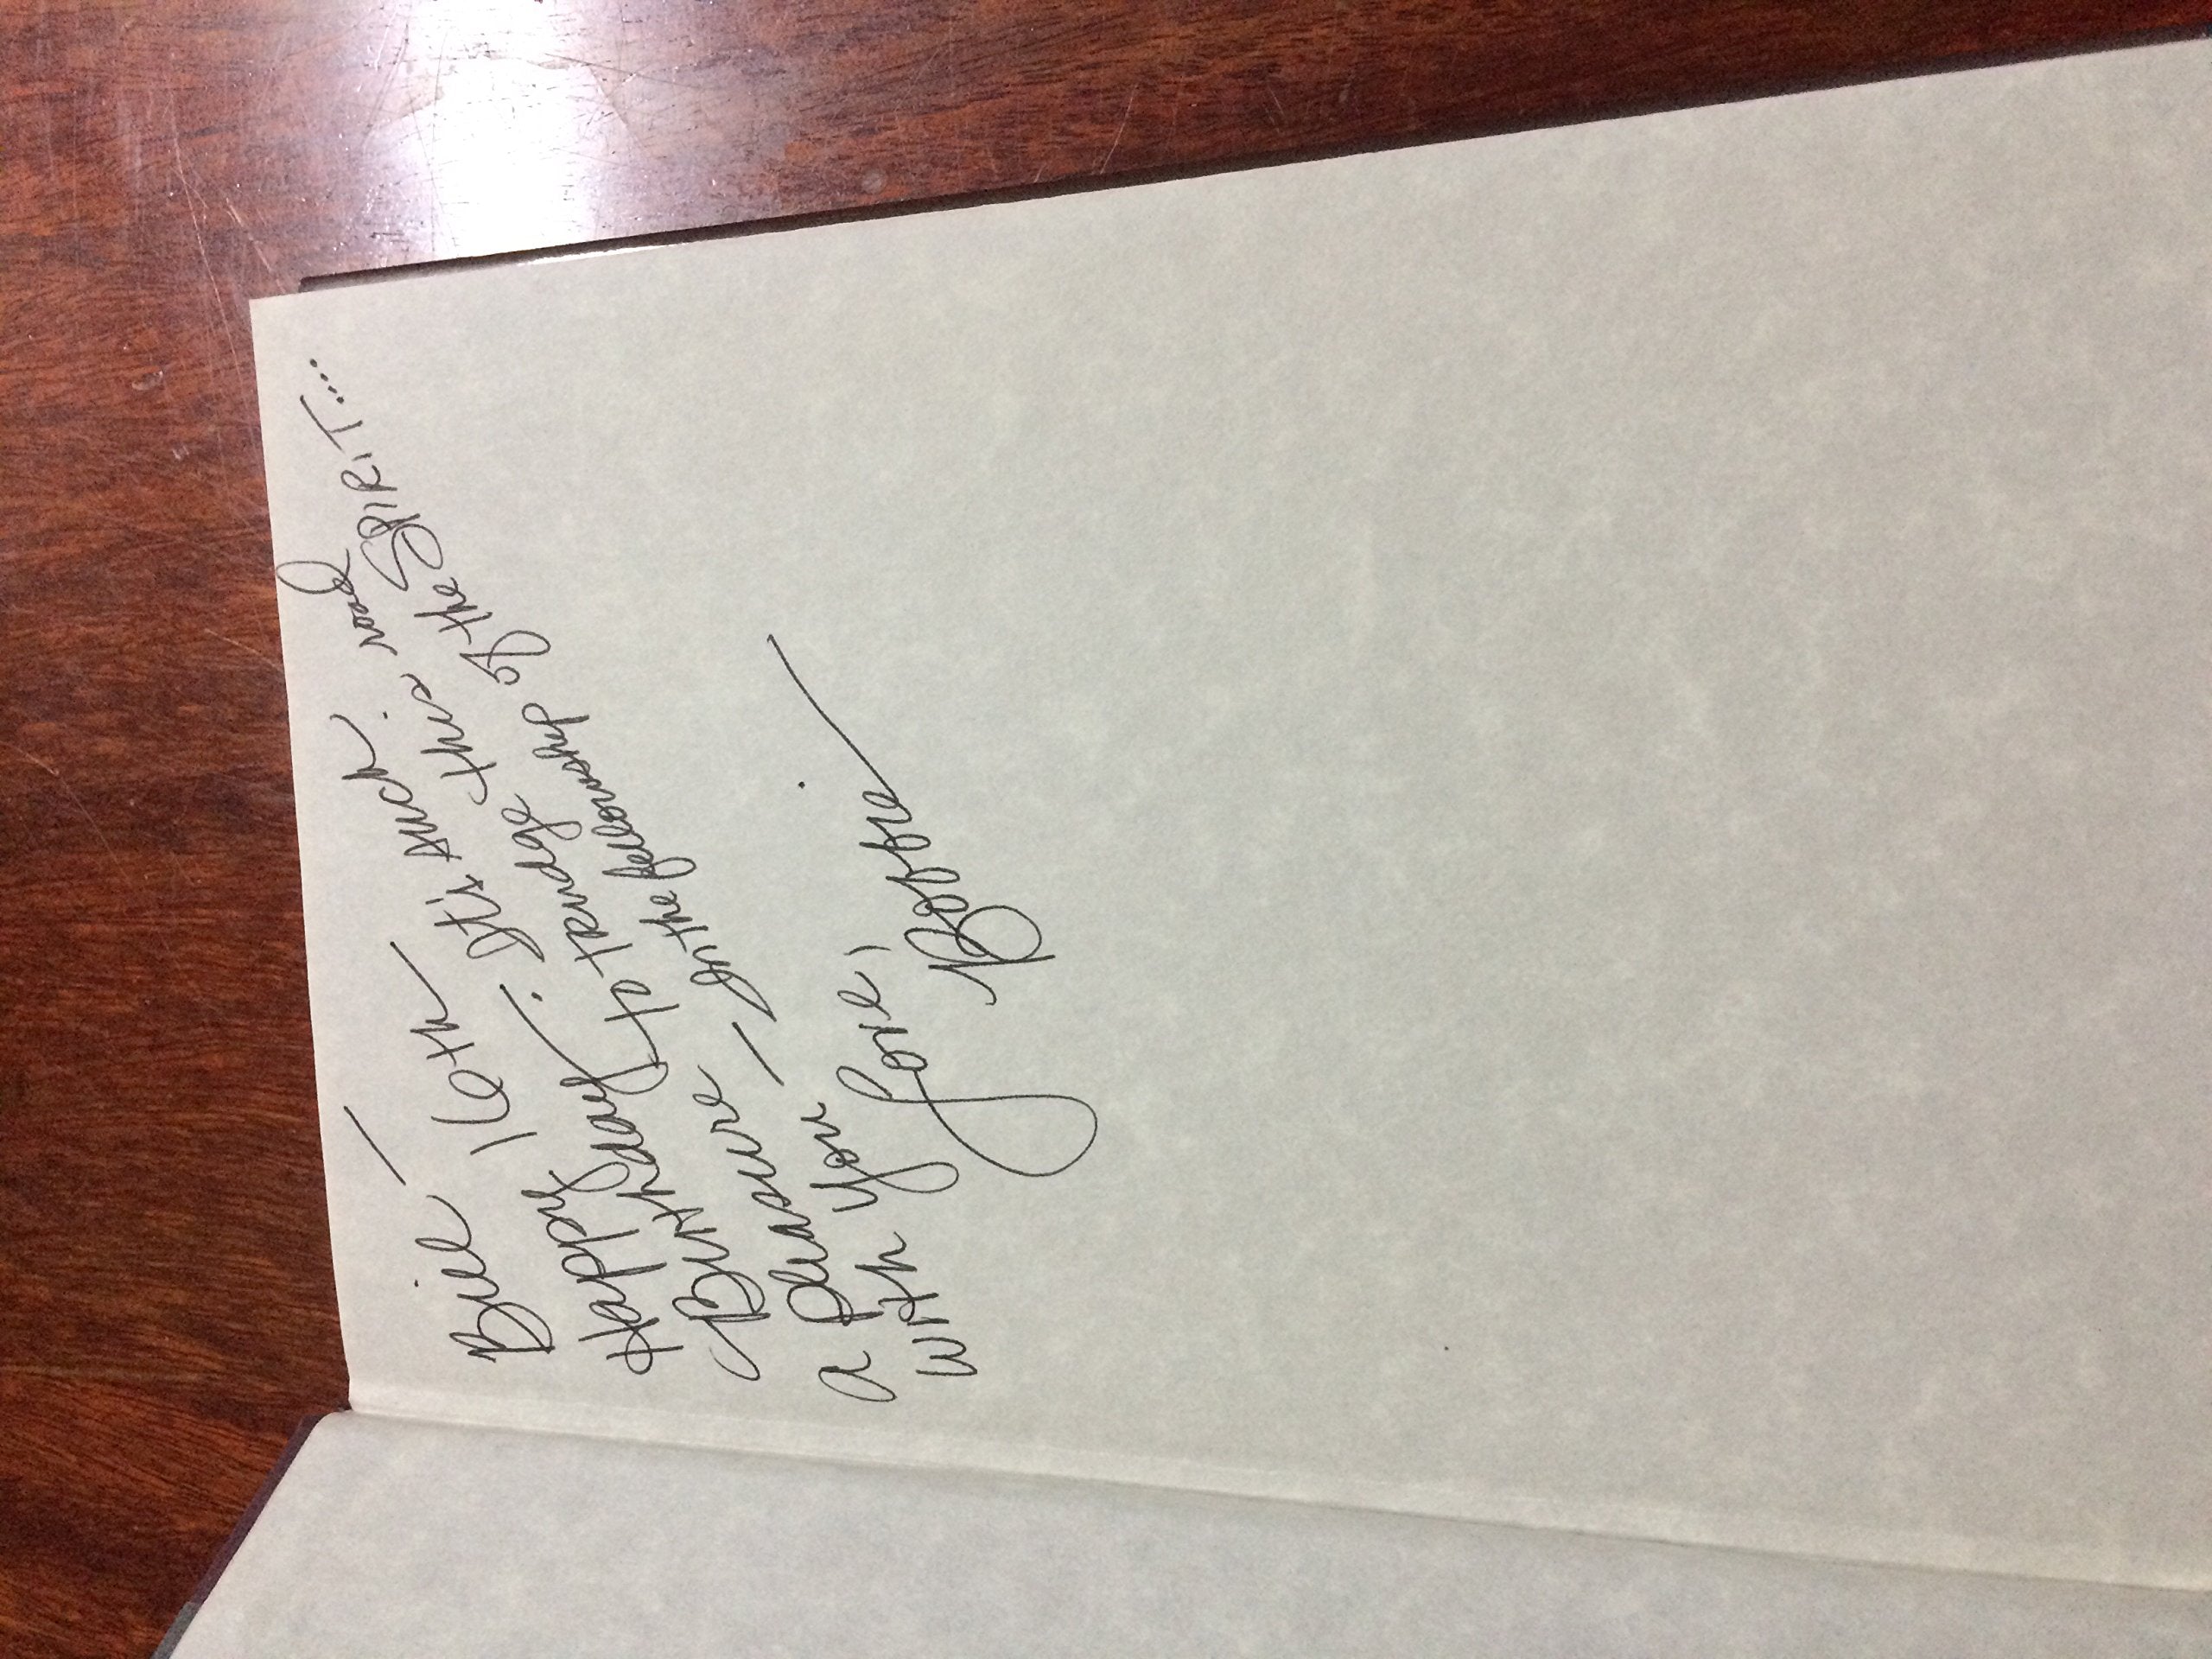 Bill —
Happy 16th —
Birthday! It's such
a pleasure to trudge this road
with you — In the fellowship of the SPIRIT....
Love,
Bobbie